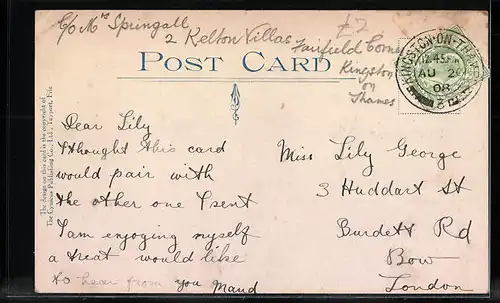 C/o Mrs Springall
2 Kelton Villas
Fairfield Corner
Kingston
on
Thames
£2
POST CARD
KINGSTON-ON-THAMES
12.45 PM
AU 2
08
Dear Lily
I thought this card
would pair with
the other one I sent
I am enjoying myself
a treat would like
to hear from you Maud
Miss Lily George
3 Huddart St
Burdett Rd
Bow
London
The design on this card is the copyright of
The Cynicus Publishing Co., Ltd., Tayport, Fife